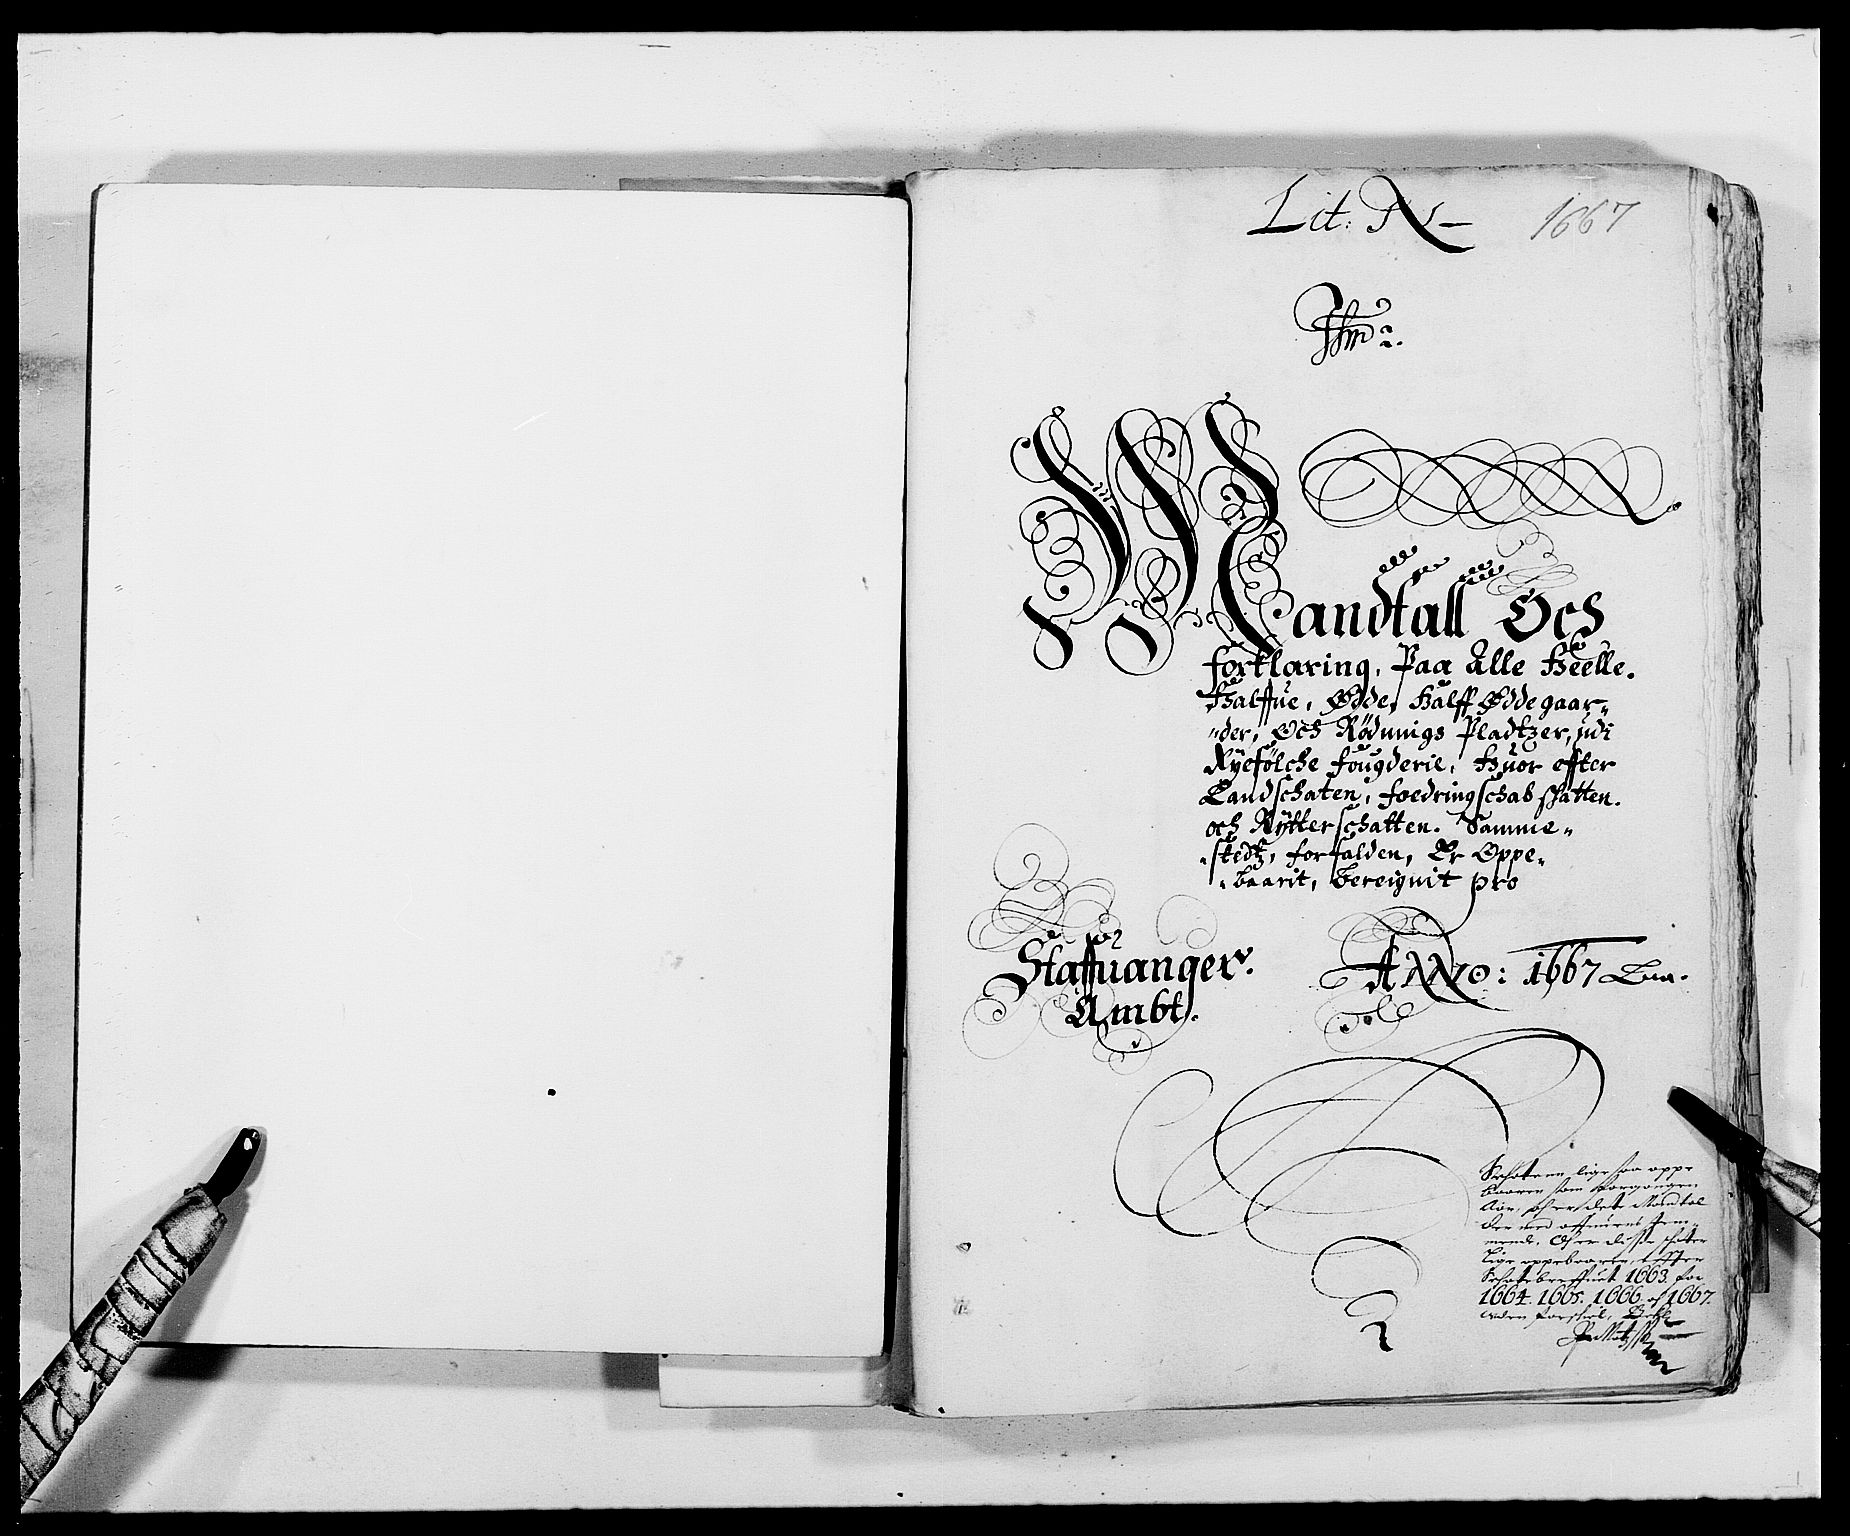 Lit: N 1667
Mandtall Och
forklaring, Paa Alle Heelle.
Halffue, Ødde, Halff Øddegaar-
der, Och Rödnings Pladtzer, udi
Ryefölche fougderie, Huor effter
Landschaten, foedringschab shatten.
och Rÿtterschatten. Samme-
stedtz, forfalden, Er Oppe-
baarit, Bereignit pro
Staffuanger.
Ambt.
ANNO: 1667
lige saa oppe
baaren som forgangen
det Mandtal
1663. for
1664. 1665. 1666. 1667.